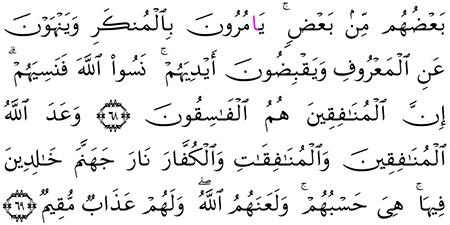 بَعْضُهُم مِّنۢ بَعْضٍۢ ۚ يَامُرُونَ بِٱلْمُنكَرِ وَيَنْهَوْنَ
عَنِ ٱلْمَعْرُوفِ وَيَقْبِضُونَ أَيْدِيَهُمْ ۚ نَسُوا۟ ٱللَّهَ فَنَسِيَهُمْ ۗ
إِنَّ ٱلْمُنَٰفِقِينَ هُمُ ٱلْفَٰسِقُونَ ٦٨ وَعَدَ ٱللَّهُ
ٱلْمُنَٰفِقِينَ وَٱلْمُنَٰفِقَٰتِ وَٱلْكُفَّارَ نَارَ جَهَنَّمَ خَٰلِدِينَ
فِيهَا ۚ هِىَ حَسْبُهُمْ ۚ وَلَعَنَهُمُ ٱللَّهُ ۖ وَلَهُمْ عَذَابٌۭ مُّقِيمٌۭ ٦٩